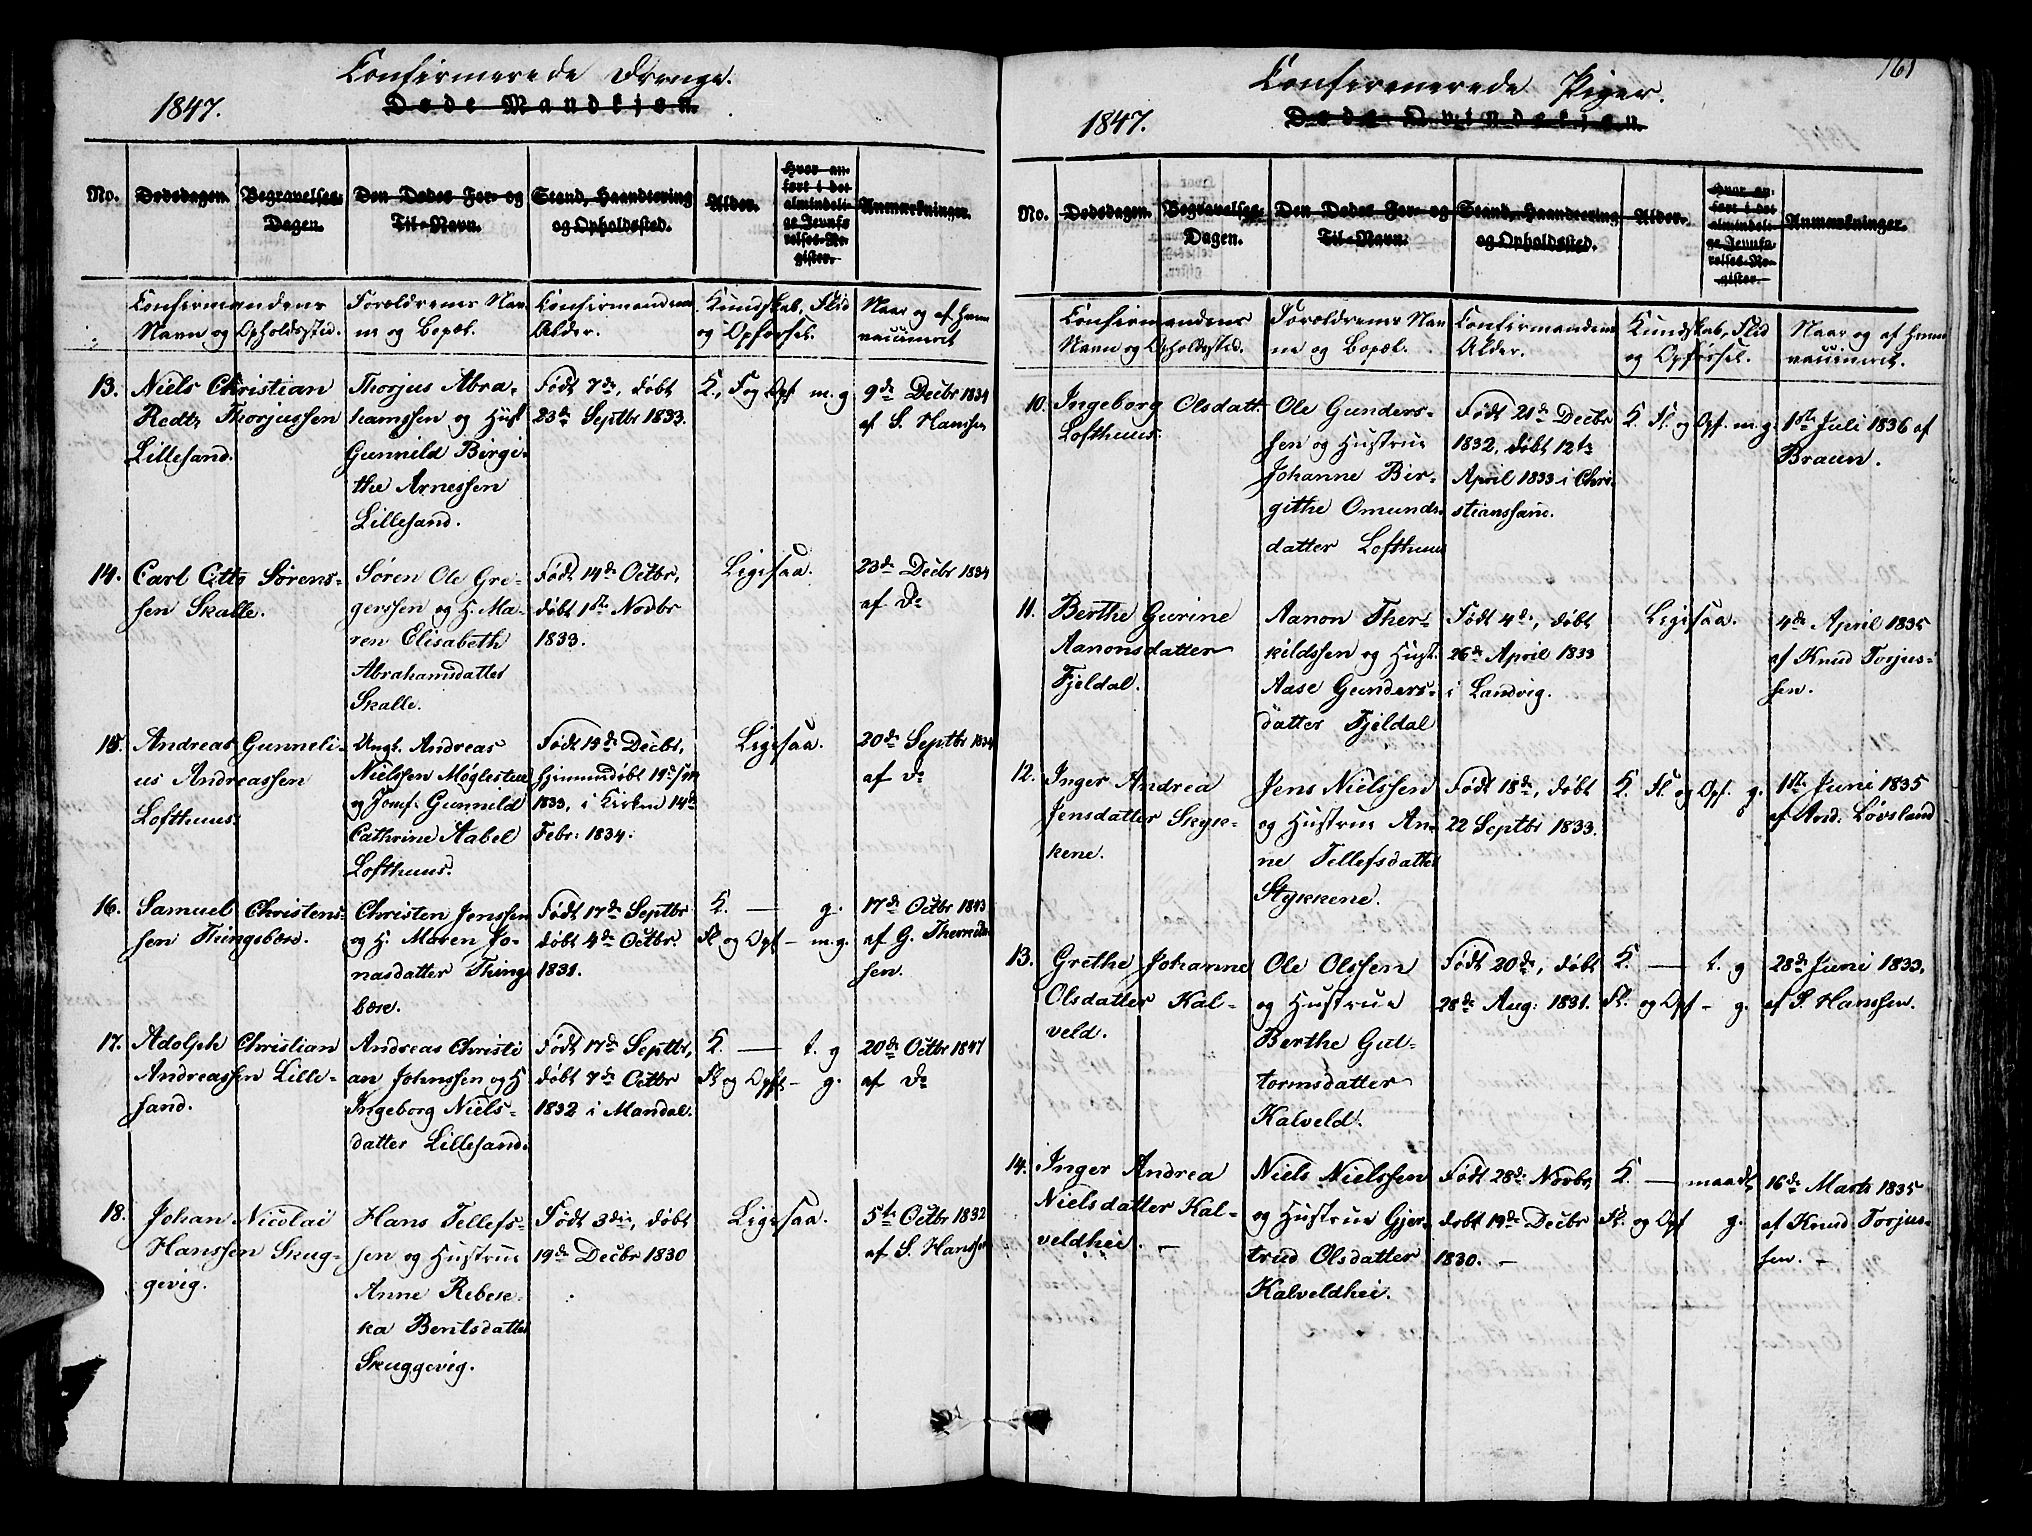 Confirmerede Drenge.
1847.
Døde Mandkjøn.
No.
Dødsdagen.
Begravelses-
Dagen.
Den Dødes For- og
Til-Navn.
Stand, Haandtering
og Opholdssted.
Alder.
Hvor an-
ført i det
almindeli-
ge Jevnfø-
relses-Re-
gister.
Anmærkninger.
Confirmandens
Navn og Opholdssted.
Forældrenes Nav-
ne og Bopæl.
Confirmandens
Alder.
Kundskab, Flid
og Opførsel.
Naar og af hvem
vaccineret
13.
Niels Christian
Redtz Thorjussen
Lillesand.
Thorjus Abra-
hamssen og Hust
Gunnild Birgi-
the Arnessen
Lillesand.
Født 7de, døbt
23de Septbr 1833.
K., F og Opf m.g
9de Decbr 1834
af S. Hanssen
14.
Carl Otto Sørens-
sen Skalle.
Søren Ole Gre-
gerssen og H. Ma-
ren Elisabeth
Abrahamsdatter
Skalle.
Født 14de Octbr,
døbt 1ste Novbr
1833.
Ligesaa.
23de Decbr 1834
af Do
15.
Andreas Gunneli-
us Andreassen
Lofthuus.
Ungk. Andreas
Nielssen Møglestue
og Jomf. Gunnild
Cathrine Aabel
Lofthuus.
Født 13de Decbr,
Hjemmedøbt 19de
1833, i Kirken 14de
Febr: 1834.
Ligesaa.
20de Septbr 1834
af Do
16.
Samuel Christens-
sen Thingsbøe.
Christen Jenssen
og H. Maren Jo-
nasdatter Things
bøe.
Født 17de Septbr
døbt 4de Octbr
1831.
K. — g.
Fl og Opf — m.g.
17de Octbr 1843
af G.
sen.
17.
Adolph Christian
Andreassen Lille-
sand.
Andreas Christi
an Johnssen og H
Ingeborg Niels-
datter Lillesand.
Født 17de Septbr,
døbt 7de Octbr
1832 i Mandal.
K. — t. g
Fl og Opf — g.
20de Octbr 1847
af Do
18.
Johan Nicolai
Hanssen Skug-
gevig.
Hans Tellefs-
sen og Hustrue
Anne Rebek-
ka Berntsdatter
Skuggevig.
Født 3die, døbt
19de Decbr 1830
Ligesaa.
5te Octbr 1832
af S. Hanssen
161
Confirmerede Piger.
1847.
Døde Qvindekjøn.
No.
Dødsdagen.
Begravelses-
Dagen.
Den Dødes For- og
Til-Navn.
Stand, Haandtering
og Opholdssted.
Alder.
Hvor an-
ført i det
almindeli-
ge Jevnfø-
relses-Re-
gister.
Anmærkninger.
Confirmandens
Navn og Opholdssted.
Forældrenes Nav
ne og Bopæl.
Confirmandens
Alder.
Kundskab, Flid
og Opførsel.
Naar og af hvem
vaccineret.
10.
Ingeborg Olsdatt.
Lofthuus.
Ole Gunders-
sen og Hustrue
Johanne Bir-
githe Omunds-
datter Lofthuus
Født 21de Decbr
1832, døbt 12te
April 1833 i Chri-
stianssand.
K. Fl. og Opf. m.g.
1ste Juli 1836 af
Braun.
11.
Berthe Gurine
Aanonsdatter
Fjeldal.
Aanon Ther-
kildssen og Hust.
Aase Gunders-
datter Fjeldal
Født 4de, døbt
26de April 1833
i Landvig.
Ligesaa.
4de April 1835
af Knud Torjus-
sen.
12.
Inger Andrea
Jensdatter Styk-
kene.
Jens Nielssen
og Hustrue An-
ne Tellefsdatter
Stykkene.
Født 18de, døbt
22 Septbr 1833.
K. Fl. og Opf. g.
1ste Juni 1835
af And. Løvsland
13.
Grethe Johanne
Olsdatter Kal-
veld.
Ole Olssen
og Hustrue
Berthe Gut-
tormsdatter
Kalveld.
Født 20de, døbt
28de Aug: 1831.
K. — t. g
Fl. og Opf — g.
28de Juni 1833.
af S. Hanssen.
14.
Inger Andrea
Nielsdatter Kal-
veldhei. —
Niels Nielssen
og Hustrue Gjer-
trud Olsdatter
Kalveldhei.
Født 28de Novbr,
døbt 19de Decbr
1830. —
K. — maadl,
Fl. og Opf g.
16de Marts 1835
af Knud Torjus-
sen. —